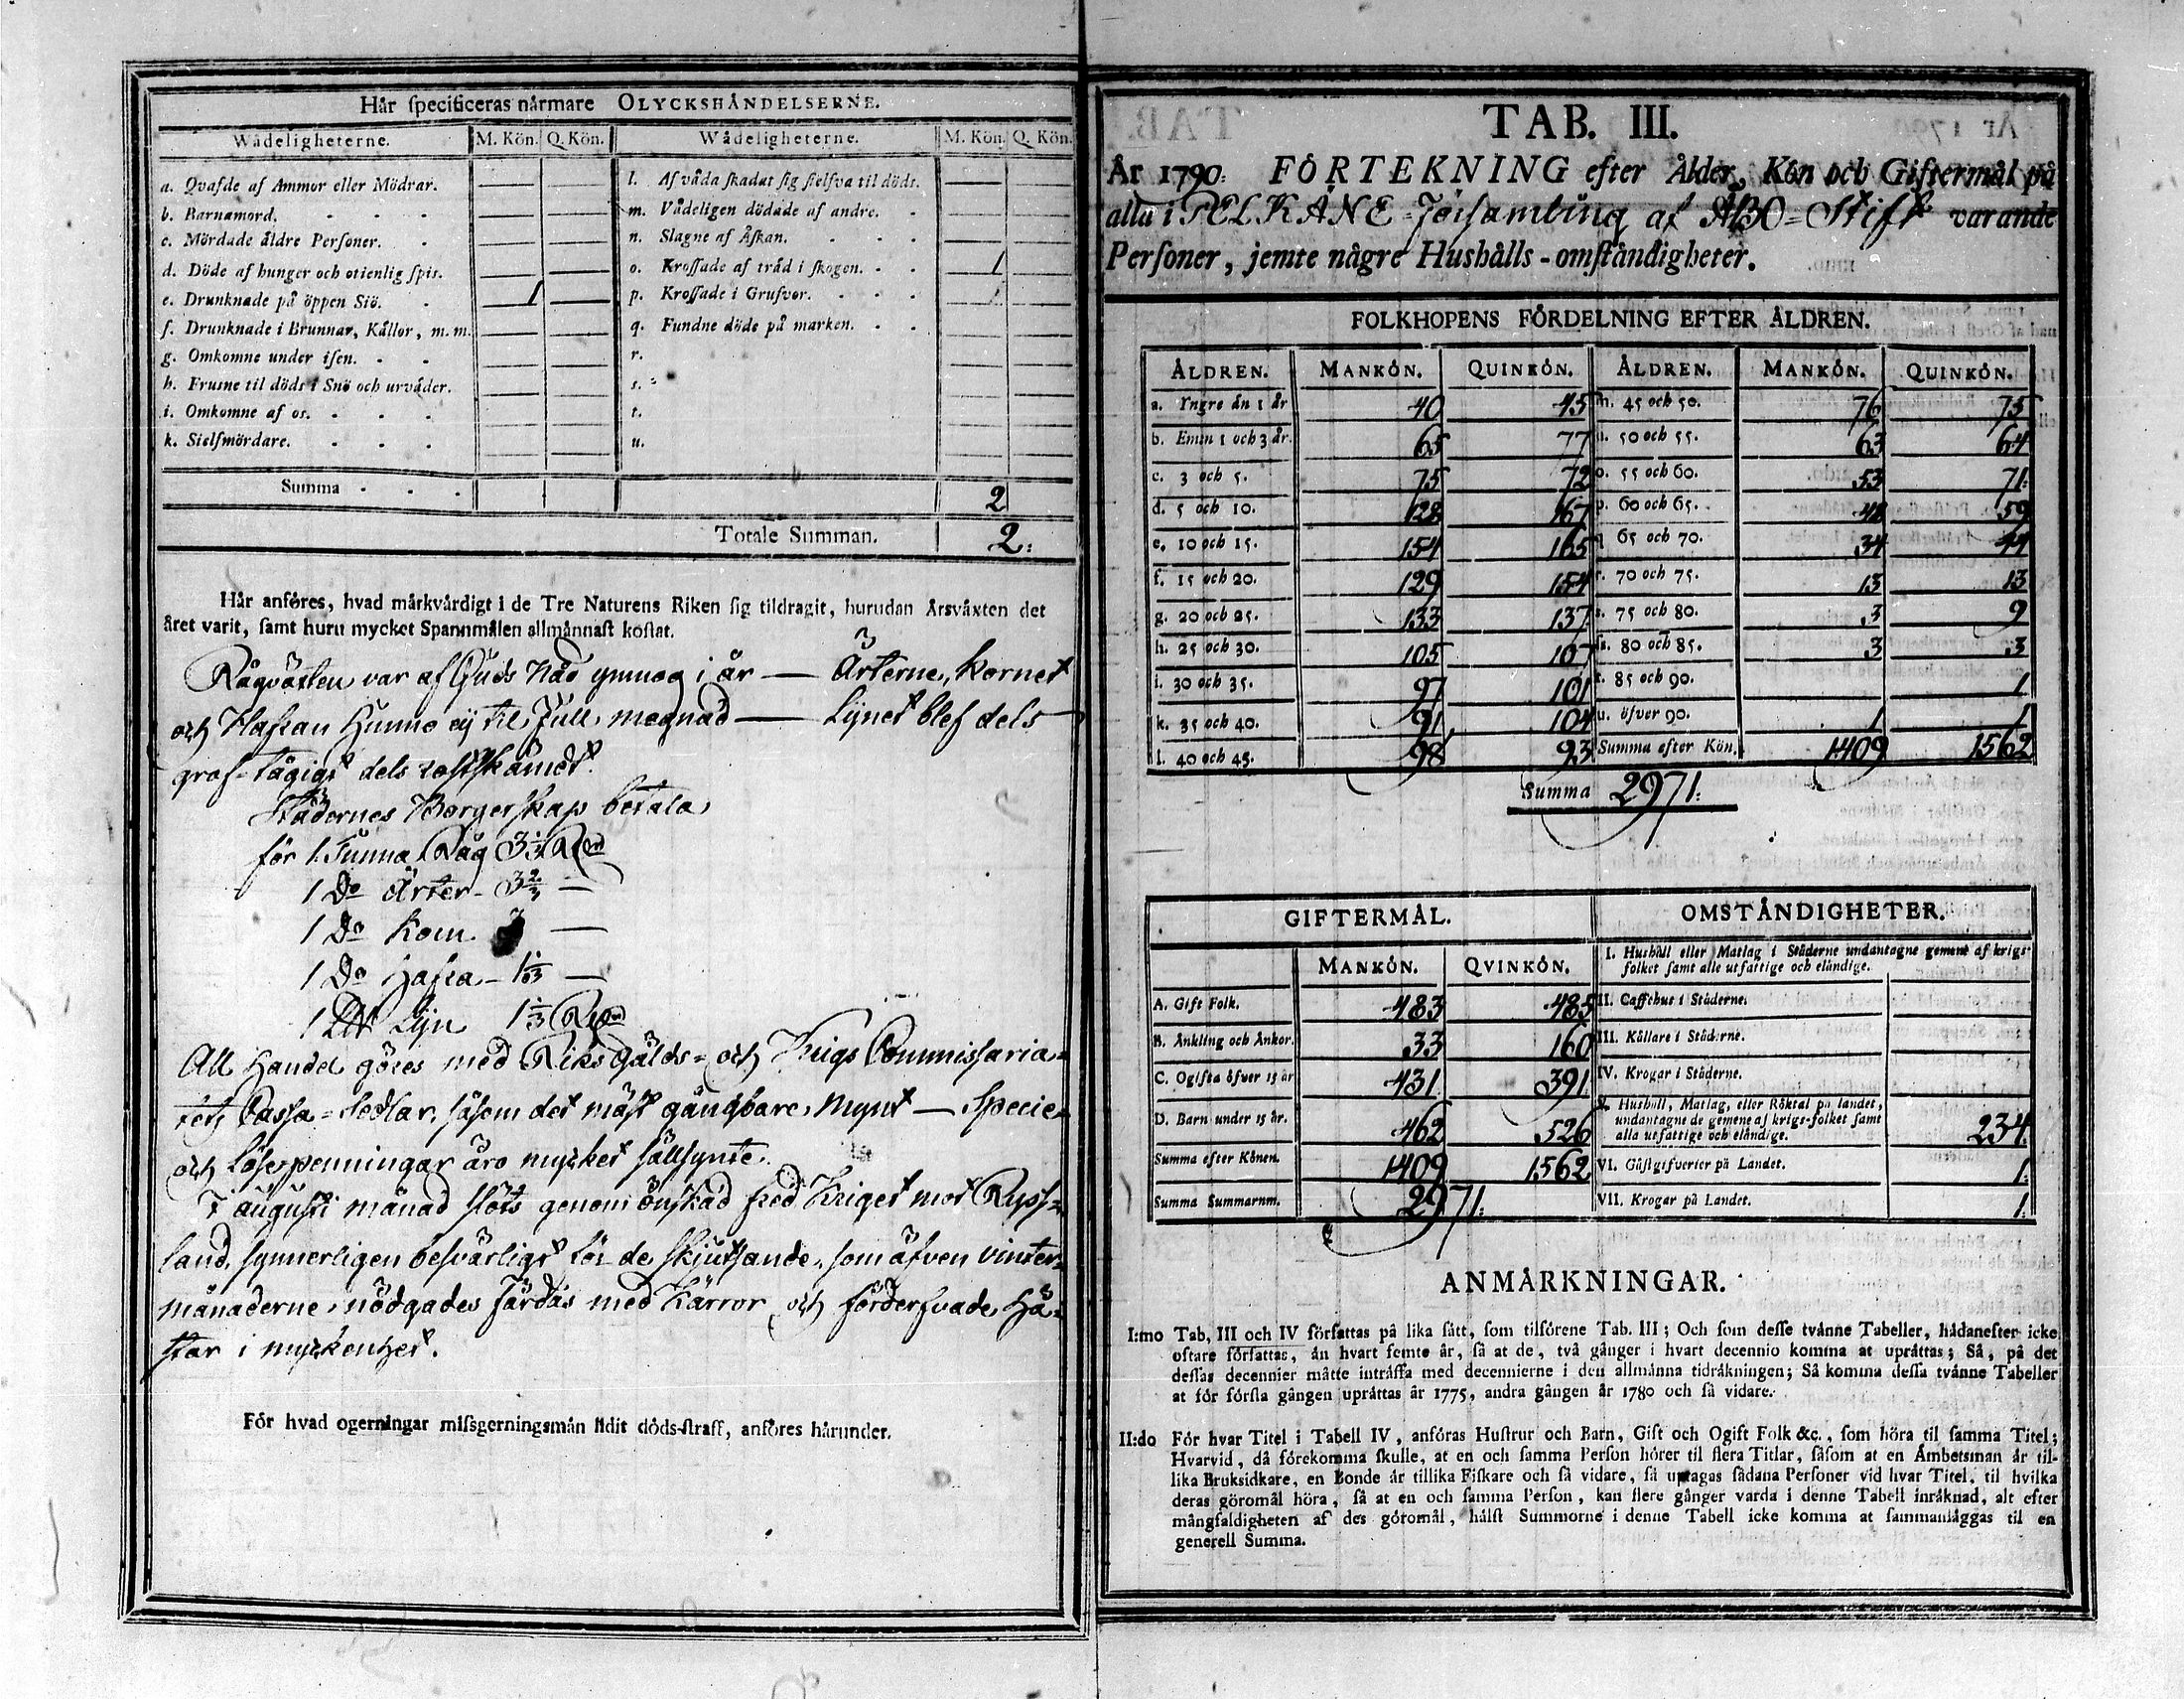 Hår specificeras nårmare OLYCKSHÅNDELSERNE.
Wådeligheterne. M. Kön. Q. Kön. Wådeligheterne. M. Kön. Q. Kön.
a. Qvafde af Ammor eller Mödrar. — — l. Af våda skadat sig sielfva til döds. — —
b. Barnamord. — — m. Vådeligen dödade af andre. — —
c. Mördade äldre Personer. — — n. Slagne af Åskan. — —
d. Döde af hunger och otienlig spis. — — o. Krossade af tråd i skogen. 1 —
e. Drunknade på öppen Siö. 1 — p. Krossade i Grufvor. —
f. Drunknade i Brunnar, Kållor, m. m. — — q. Fundne döde på marken. — —
g. Omkomne under isen. — — r. — —
h. Frusne til döds i Snö och urväder. — — s. — —
i. Omkomne af os. — — t. — —
k. Sielfmördare. — — u. — —
Summa 2
Totale Summan. 2.
Hår anföres, hvad mårkvårdigt i de Tre Naturens Riken sig tildragit, hurudan Årsvåxten det
året varit, samt huru mycket Spannmålen allmånnast kostat.
Rågväxten var af Guds Nåd ymnog i år — Ärterne, Kornet
och Hafran hunno ej til full mognad — Lijnet blef dels
grof-tågigt dels rostskämdt.
Städernes Borgerskap betala
för 1. Tunna Råg 3 1/3 R
1 Do Ärter - 3 2/3 —
1 Do Korn —
1 Do Hafra —
1 Lijn 1 1/3
All Handel göres med Riksgälds- och Krigs Commissaria-
tets Cassa-Sedlar, såsom det mäst gångbare Mynt — Specie-
och Löse-penningar äro mycket sällsynte.
I augusti månad slöts genom önskad fred Kriget mot Ryss-
land, synnerligen besvärligt för de skjutsande, som äfven vinter-
månaderne nödgades färdas med Kärror och förderfvade Hä-
star i myckenhet.
För hvad ogerningar missgerningsmån lidit döds-straff, anföres hårunder.
TAB. III.
År 1790. FÖRTEKNING efter Ålder, Kön och Giftermål på
alla i PELKÄNE Församling af ÅBO-Stift varande
Personer, jemte någre Hushålls-omståndigheter.
FOLKHOPENS FÖRDELNING EFTER ÅLDREN.
ÅLDREN. MANKÖN. QUINKÖN. ÅLDREN. MANKÖN. QUINKÖN.
a. Yngre ån 1 år 40 45 m. 45 och 50. 76 75
b. Emin 1 och 3 år. 65 77 n. 50 och 55. 63 64
c. 3 och 5. 75 72 o. 55 och 60. 53 71
d. 5 och 10. 128 167 p. 60 och 65. 48 59
e. 10 och 15. 154 165 q 65 och 70. 34 44
f. 15 och 20. 129 154 r. 70 och 75. 13 13
g. 20 och 25. 133 137 s. 75 och 80. 3 9
h. 25 och 30. 105 107 ss. 80 och 85. 3 3
i. 30 och 35. 97 101 t. 85 och 90. 1
k. 35 och 40. 91 104 u. öfver 90. 1 1
l. 40 och 45. 98 93 Summa efter Kön. 1409 1562
Summa 2971.
GIFTERMÅL. OMSTÅNDIGHETER.
MANKÖN. QVINKÖN. I. Hushåll eller Matlag i Städerne undantagne gement af krigs-
folket samt alle utfattige och elåndige.
A. Gift Folk. 483 485 II. Caffehus i Städerne.
B. Ånkling och Ånkor. 33 160 III. Kållare i Städerne.
C. Ogifta öfver 15 år 431 391 IV. Krogar i Städerne.
D. Barn under 15 år. 462 526 V. Hushåll, Matlag, eller Röktal på landet,
undantagne de gemene af krigs-folket samt
alla utfattige och elåndige. 234
Summa efter Könen. 1409 1562 VI. Gåstgifverier på Landet. 1.
Summa Summarum. 2971. VII. Krogar på Landet. 1.
ANMÅRKNINGAR.
I:mo Tab. III och IV författas på lika sått, som tilförene Tab. III; Och som desse tvånne Tabeller, hådanefter icke
oftare författas, ån hvart femte år, så at de, två gånger i hvart decennio komma at upråttas; Så, på det
dessas decennier måtte intråffa med decennierne i den allmånna tidråkningen; Så komma dessa tvånne Tabeller
at för första gången upråttas år 1775, andra gången år 1780 och så vidare.
II:do För hvar Titel i Tabell IV, anföras Hustrur och Barn, Gift och Ogift Folk &c., som höra til samma Titel;
Hvarvid, då förekomma skulle, at en och samma Person hörer til flera Titlar, såsom at en Åmbetsman år til-
lika Bruksidkare, en Bonde år tillika Fiskare och så vidare, så uptagas sådana Personer vid hvar Titel, til hvilka
deras göromål höra, så at en och samma Person, kan flere gånger varda i denne Tabell inråknad, alt efter
mångfaldigheten af des göromål, hålst Summorne i denne Tabell icke komma at sammanlåggas til en
generell Summa.